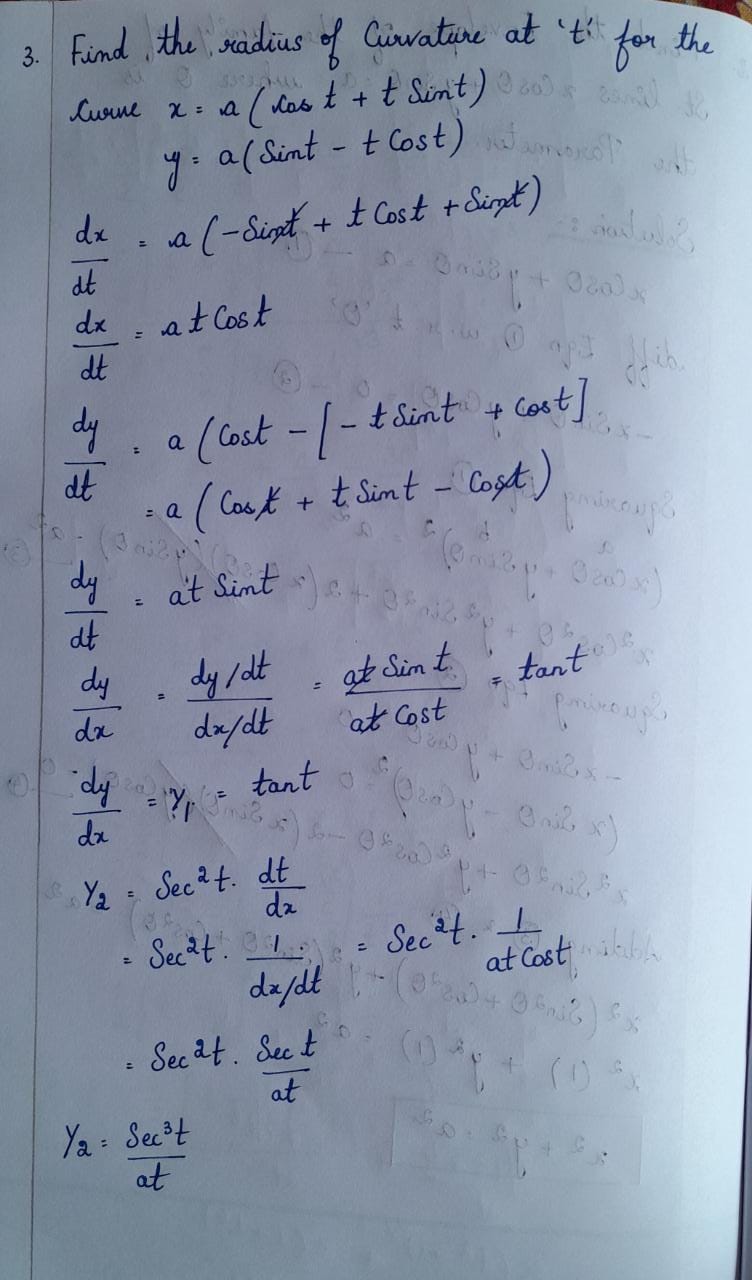 3. Find the radius of Curvature at 't' for the
Curve x = a (Cos t + t Sint)
y = a (Sint - t Cost)
dx/dt = a (-Sint + t Cost + Sint)
dx/dt = a t Cost
dy/dt = a (Cost - [- t Sint + Cost]
= a (Cost + t Sint - Cost)
dy/dt = at Sint
dy/dx = dy/dt / dx/dt = at Sin t / at Cost = tant
dy/dx = Y₁ = tant
Y₂ = Sec²t. dt/dx
= Sec²t. 1/dx/dt = Sec²t. 1/at Cost
= Sec²t. Sec t/at
Y₂ = Sec³t/at